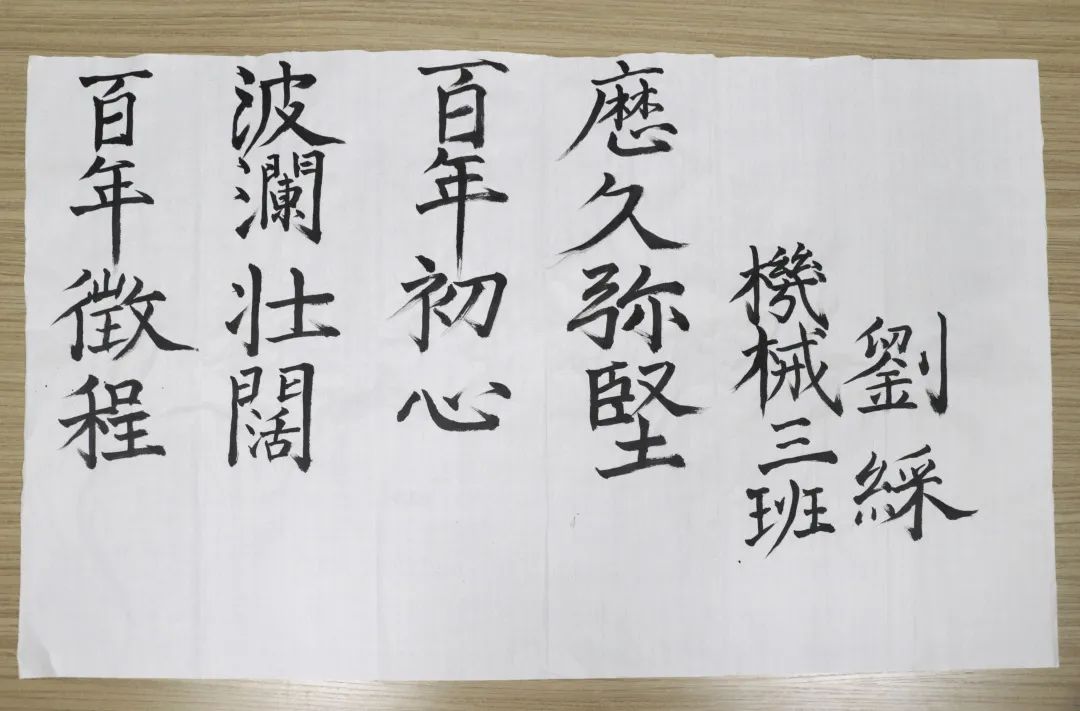 百年徵程
波瀾壮闊
百年初心
歷久弥堅
機械三班
劉綵